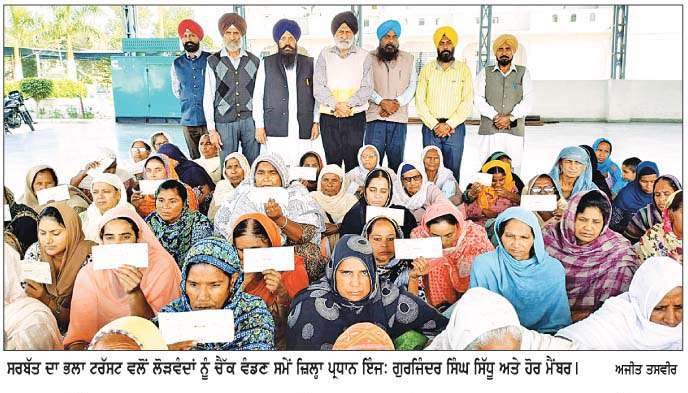 ਸਰਬੱਤ ਦਾ ਭਲਾ ਟਰੱਸਟ ਵਲੋਂ ਲੋੜਵੰਦਾਂ ਨੂੰ ਚੈੱਕ ਵੰਡਣ ਸਮੇਂ ਜ਼ਿਲ੍ਹਾ ਪ੍ਰਧਾਨ ਇੰਜ: ਗੁਰਜਿੰਦਰ ਸਿੰਘ ਸਿੱਧੂ ਅਤੇ ਹੋਰ ਮੈਂਬਰ। ਅਜੀਤ ਤਸਵੀਰ